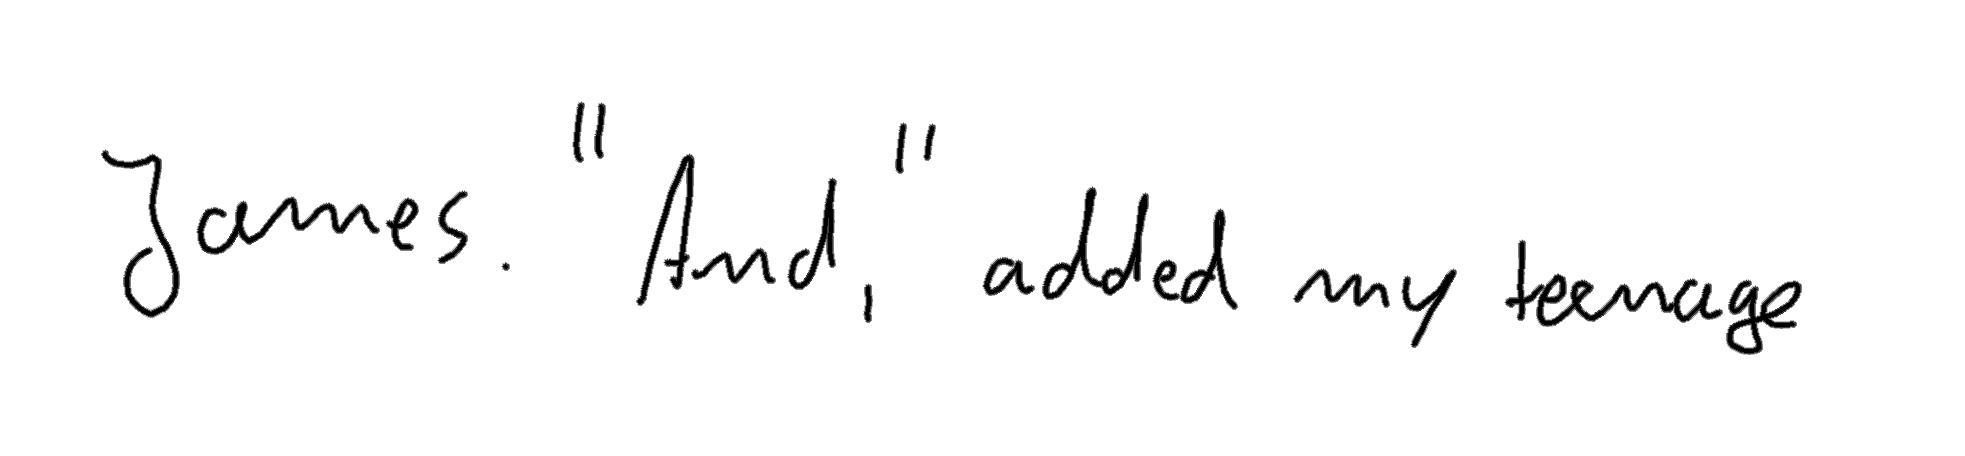 James. "And," added my teenage